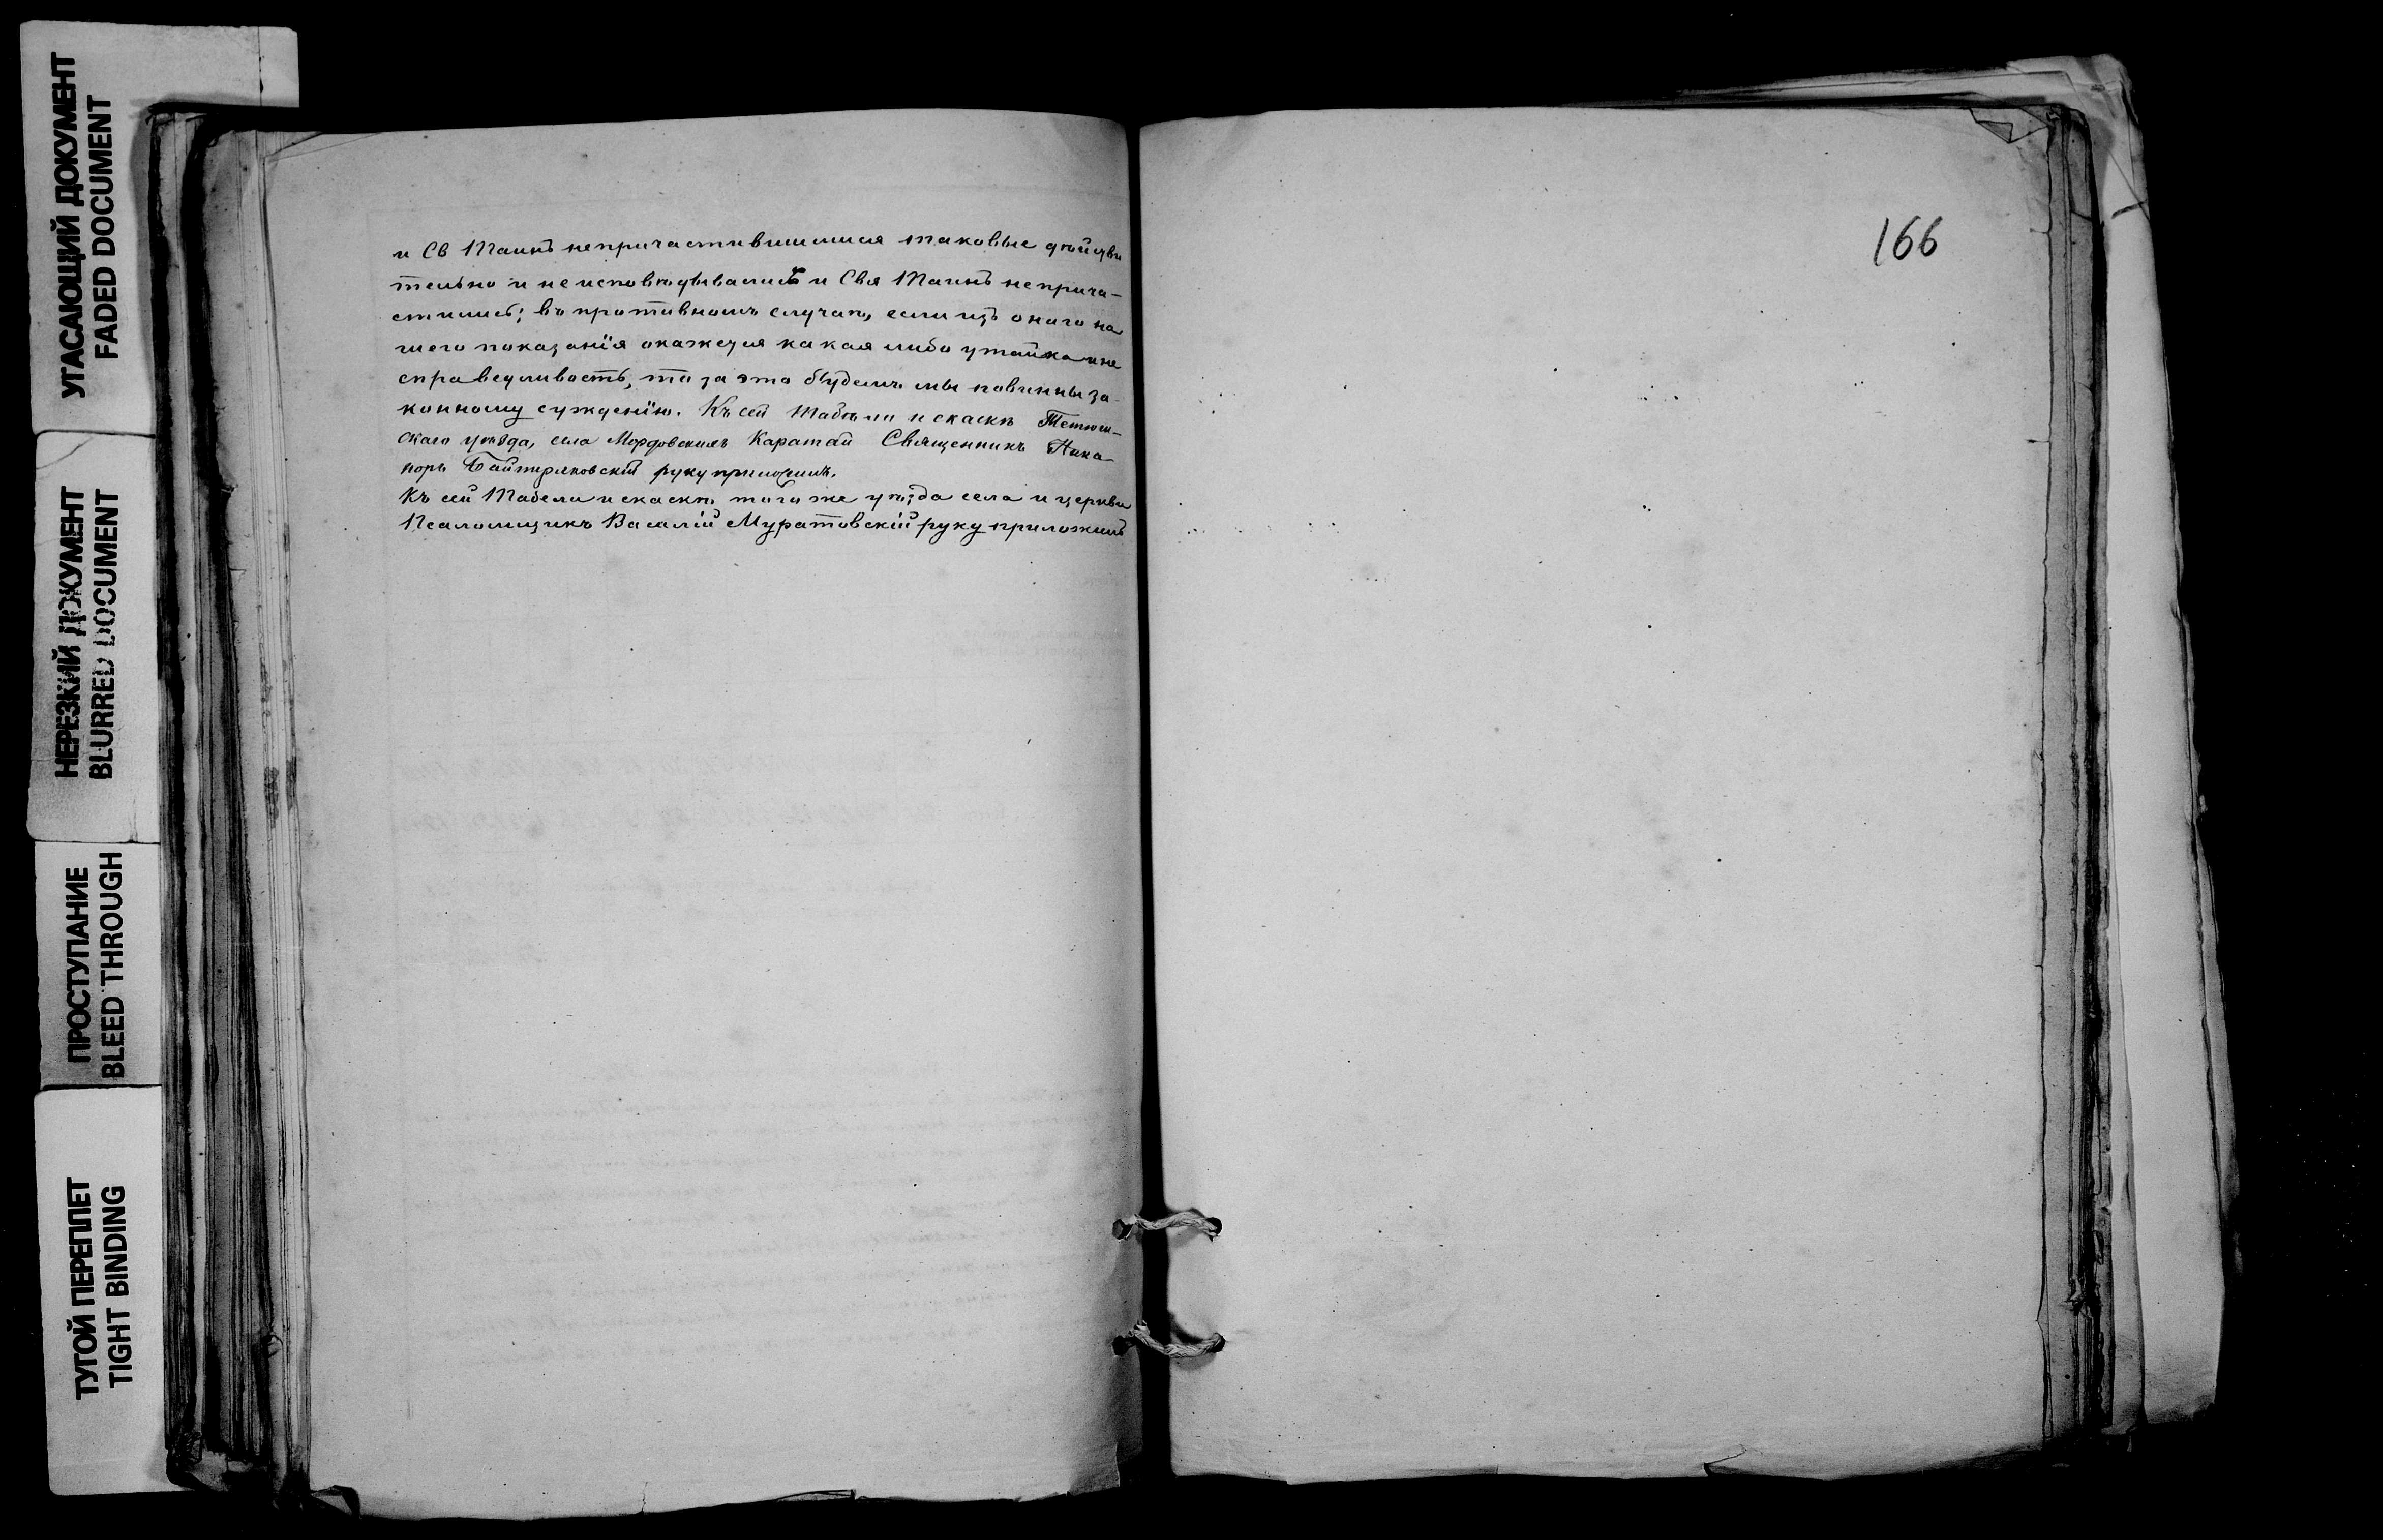 УГАСАЮЩИЙ ДОКУМЕНТ
FADED DOCUMENT
НЕРЕЗКИЙ ДОКУМЕНТ
BLURRED DOCUMENT
ПРОСТУПАНИЕ
BLEED THROUGH
ТУГОЙ ПЕРЕПЛЕТ
TIGHT BINDING
и Св Таинъ непричастившимися таковые дѣйстви
тельно и неисповѣдывались и Свя Таинъ неприча-
стились; въ противномъ случаѣ, если изъ онаго на
шего показанія окажется какая либо утайка и не
справедливость, то за это будемъ мы повинны за-
конному сужденію. Къ сей Табѣли и скаскѣ Тетюш-
скаго уѣзда, села Мордовскихъ Каратай Священникъ Ника
норъ руку приложилъ.
Къ сей Табели и скаскѣ того же уѣзда села и церкви
Псаломщикъ Василій Муратовскій руку приложилъ
166